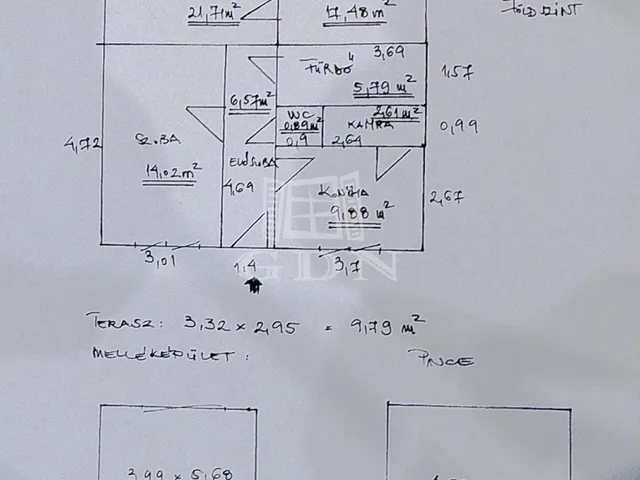 21,71 m²
17,48 m²
FÖLDSZINT
3,69
FÜRDŐ
5,79 m²
1,57
6,57 m²
WC
0,89 m²
0,9
2,61 m²
KAMRA
2,64
0,99
4,72
SZ.BA
14,02 m²
ELŐSZOBA
4,69
KONYHA
9,88 m²
2,67
GDN
3,01
1,4
3,7
TERASZ: 3,32 x 2,95 = 9,79 m²
MELLÉKÉPÜLET:
PINCE
3,99 x 5,68